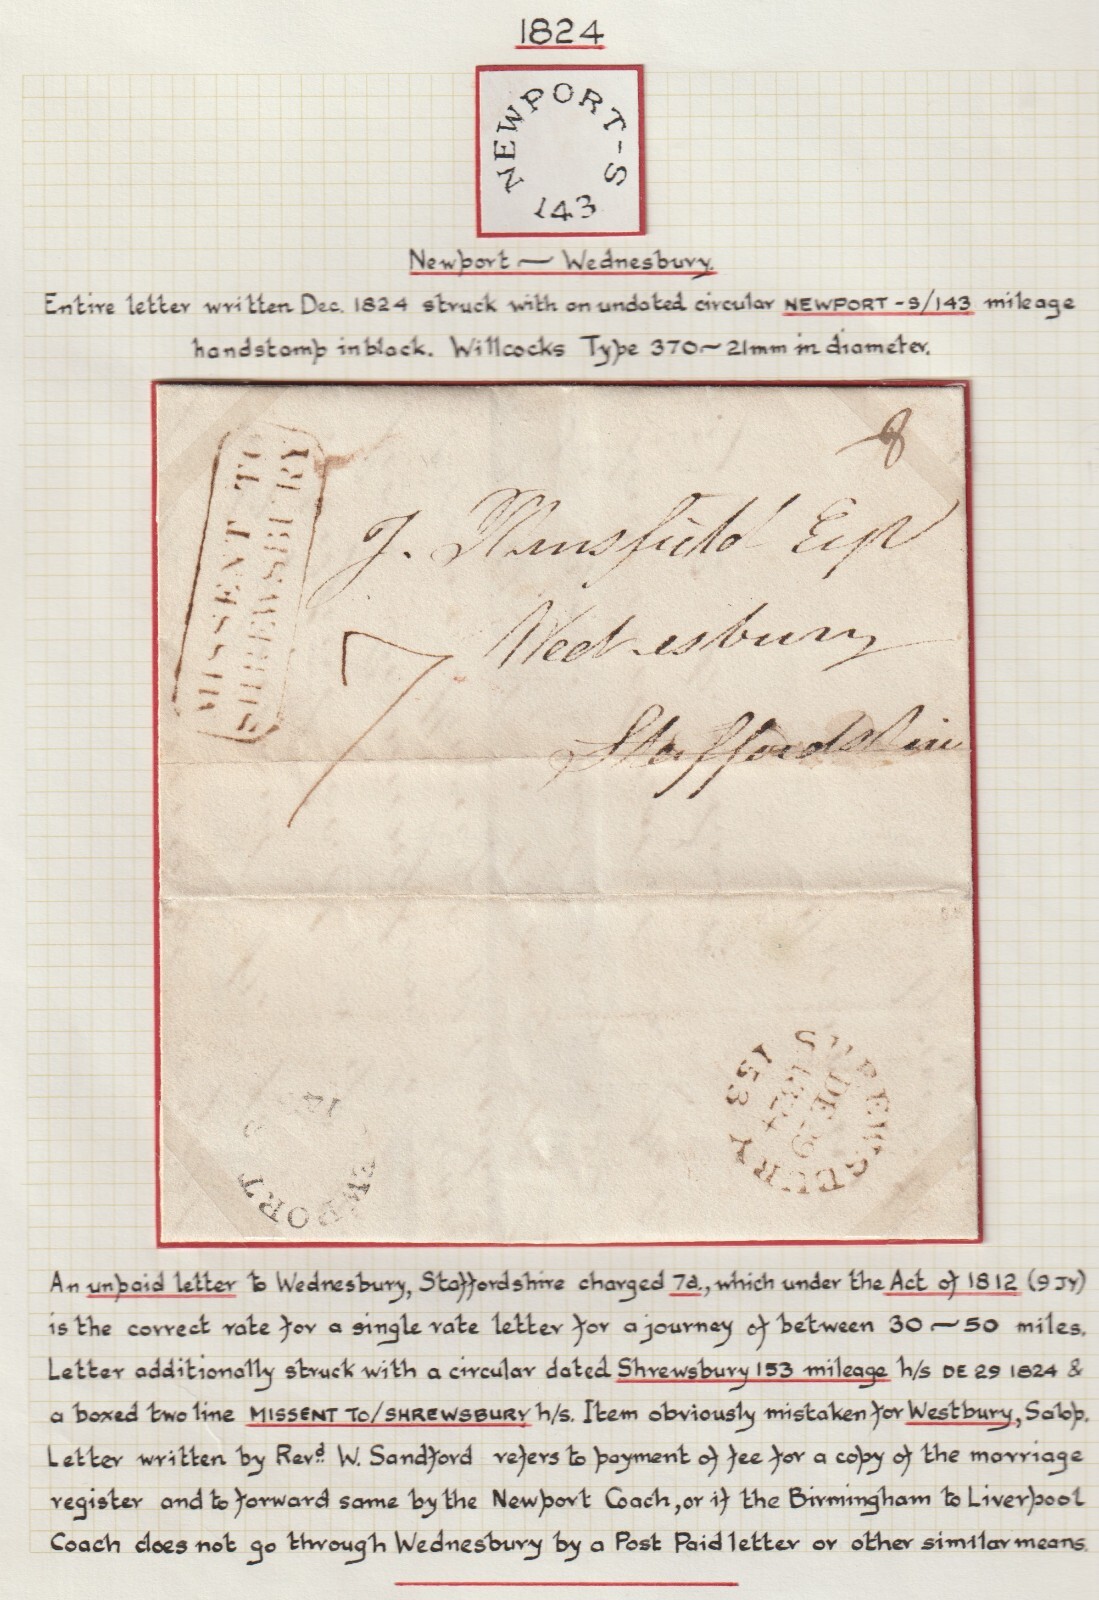 1824
NEWPORT-S
143
Newport — Wednesbury.
Entire letter written Dec. 1824 struck with an undated circular NEWPORT-S/143 mileage
handstamp in black. Willcocks Type 370 ~ 21mm in diameter.
8
MISSENT TO
SHREWSBURY
J. Mansfield Esqr
7
Wednesbury
Staffordshire
SHREWSBURY
DE 29
1824
153
EWPORT
An unpaid letter to Wednesbury, Staffordshire charged 7d., which under the Act of 1812 (9 JY)
is the correct rate for a single rate letter for a journey of between 30 ~ 50 miles.
Letter additionally struck with a circular dated Shrewsbury 153 mileage h/s DE 29 1824 &
a boxed two line MISSENT TO/SHREWSBURY h/s. Item obviously mistaken for Westbury, Salop.
Letter written by Revd. W. Sandford refers to payment of fee for a copy of the marriage
register and to forward same by the Newport Coach, or if the Birmingham to Liverpool
Coach does not go through Wednesbury by a Post Paid letter or other similar means.